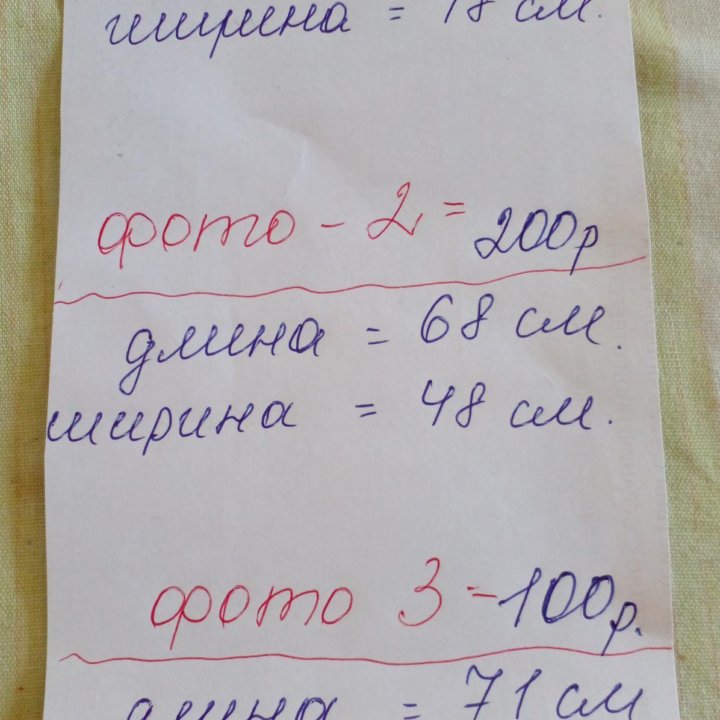 ширина = 18 см.
фото - 2 = 200р
длина = 68 см.
ширина = 48 см.
фото 3 = 100р.
длина = 71 см